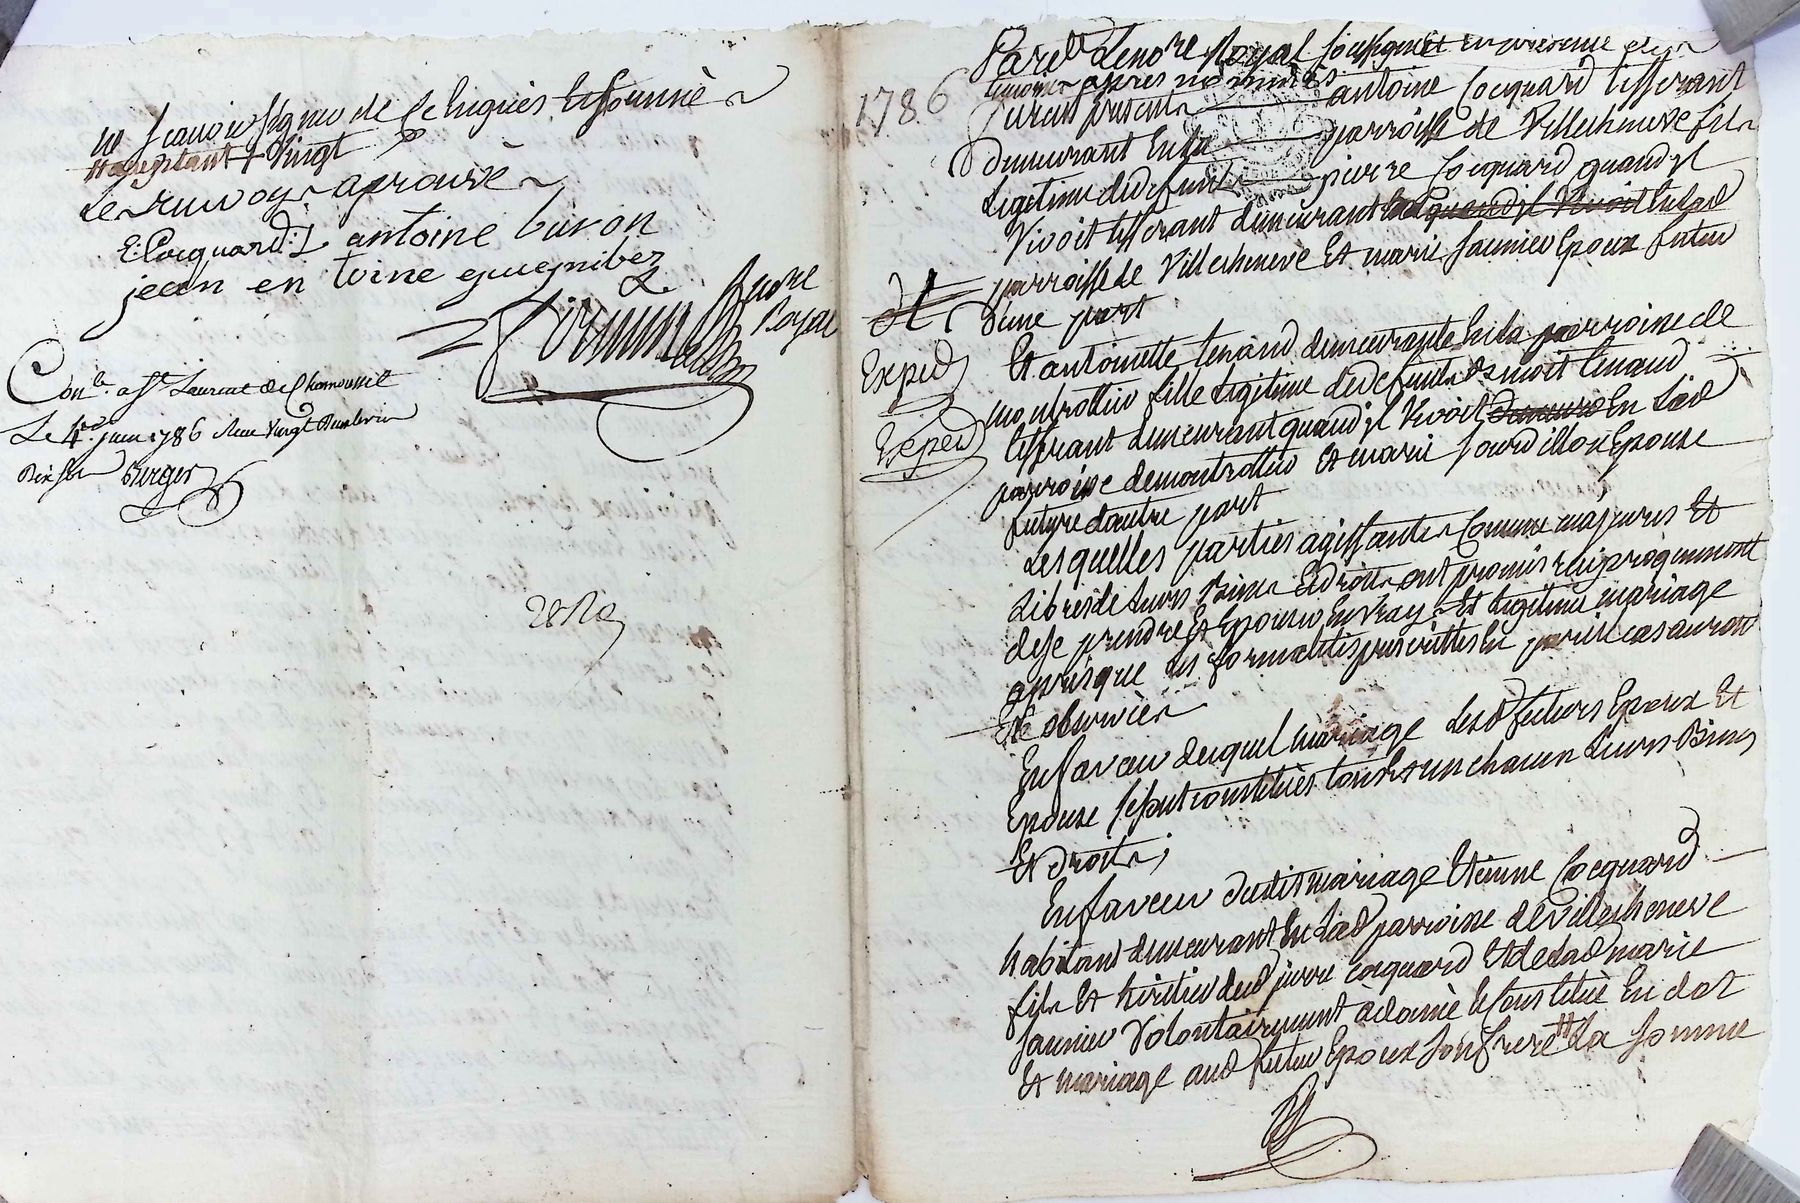 ny scavoir signer de ce enquis et sommè
acceptant + vingt
Le renvoy aprouvè
E: Cocquard: antoine buron
jean en toine
nore
Royal
Con.le a St Laurent de Chamousset
Le 4e juin 1786 Reçu vingt
Berger
1786
Pard.t le no.re Royal soussignè Et en presence des
temoins apres nommès
furent presents antoine Cocquard tisserant
demeurant en la parroisse de Villecheneve fils
Legitime de defunt pierre Cocquard quand jl
Vivoit tisserant demeurant quand jl Vivoit en lad
parroisse de Villecheneve Et marie saunier Epoux futur
d'une part
Exped
Exped
Et antoinette tenaud demeurante En la parroisse de
montrottier fille Legitime de defunt benoit tenaud
tisserant demeurant quand jl Vivoit demeuro En Lad
parroisse de montrottier Et marie Epouse
future dautre part
Lesquelles parties agissants Comme majeurs Et
Libres de Leurs Biens Et droits ont promis reciproquement
de se prendre Et Epouser En Vray Et Legitime mariage
apres que les formalités prescrittes En pareil cas auront
Eté observèes
En faveur duquel mariage Lesd futurs Epoux Et
Epouse se sont constituès tous Et un chacun Leurs Biens
Et droits;
En faveur dudit mariage Etienne Cocquard
habitant demeurant En Lad parroisse de Villecheneve
fils Et hèritier dud pierre cocquard Et de lad marie
saunier Volontairement à donnè Et Constituè En dot
Et mariage aud futur Epoux son frere La somme